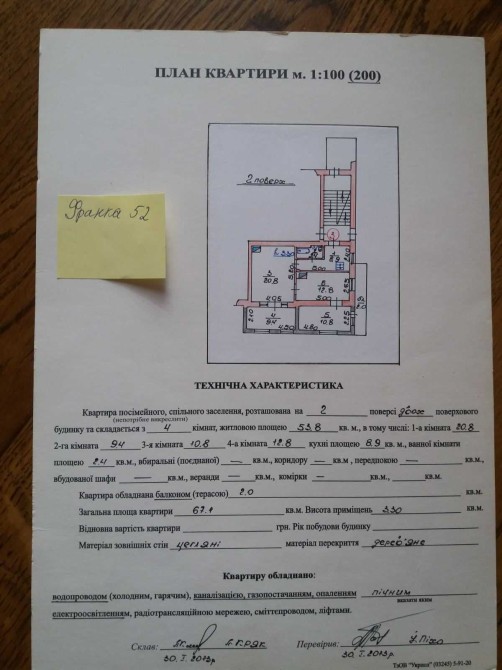 ПЛАН КВАРТИРИ м. 1:100 (200)
2 поверх
Франка 52
h 330
3
20.8
4.95
6
12.8
5.00
4
9.4
4.50
2.10
5
10.8
4.80
2.25
ТЕХНІЧНА ХАРАКТЕРИСТИКА
Квартира посімейного, спільного заселення, розташована на 2 поверсі двох поверхового
(непотрібне викреслити)
будинку та складається з 4 кімнат, житловою площею 53.8 кв. м., в тому числі: 1-а кімната 20.8
2-га кімната 9.4 3-я кімната 10.8 4-а кімната 12.8 кухні площею 8.9 кв. м., ванної кімнати
площею 2.4 кв.м., вбиральні (поєднаної) — кв.м., коридору — кв.м , передпокою — кв.м.,
вбудованої шафи — кв.м., веранди — кв.м., комірки — кв.м., кв.м.
Квартира обладнана балконом (терасою) 2.0 кв.м.
Загальна площа квартири 67.1 кв.м. Висота приміщень 330
Відновна вартість квартири грн. Рік побудови будинку
Матеріал зовнішніх стін цегляні матеріал перекриття дерев'яне
Квартиру обладнано:
водопроводом (холодним, гарячим), каналізацією, газопостачанням, опаленням пічним
вказати яким
електроосвітленням, радіотрансляційною мережею, сміттєпроводом, ліфтами.
Склав: Перевірив:
30. I. 2013р 30. I. 2013р.
ТзОВ "Укрпол" (03245) 5-91-20